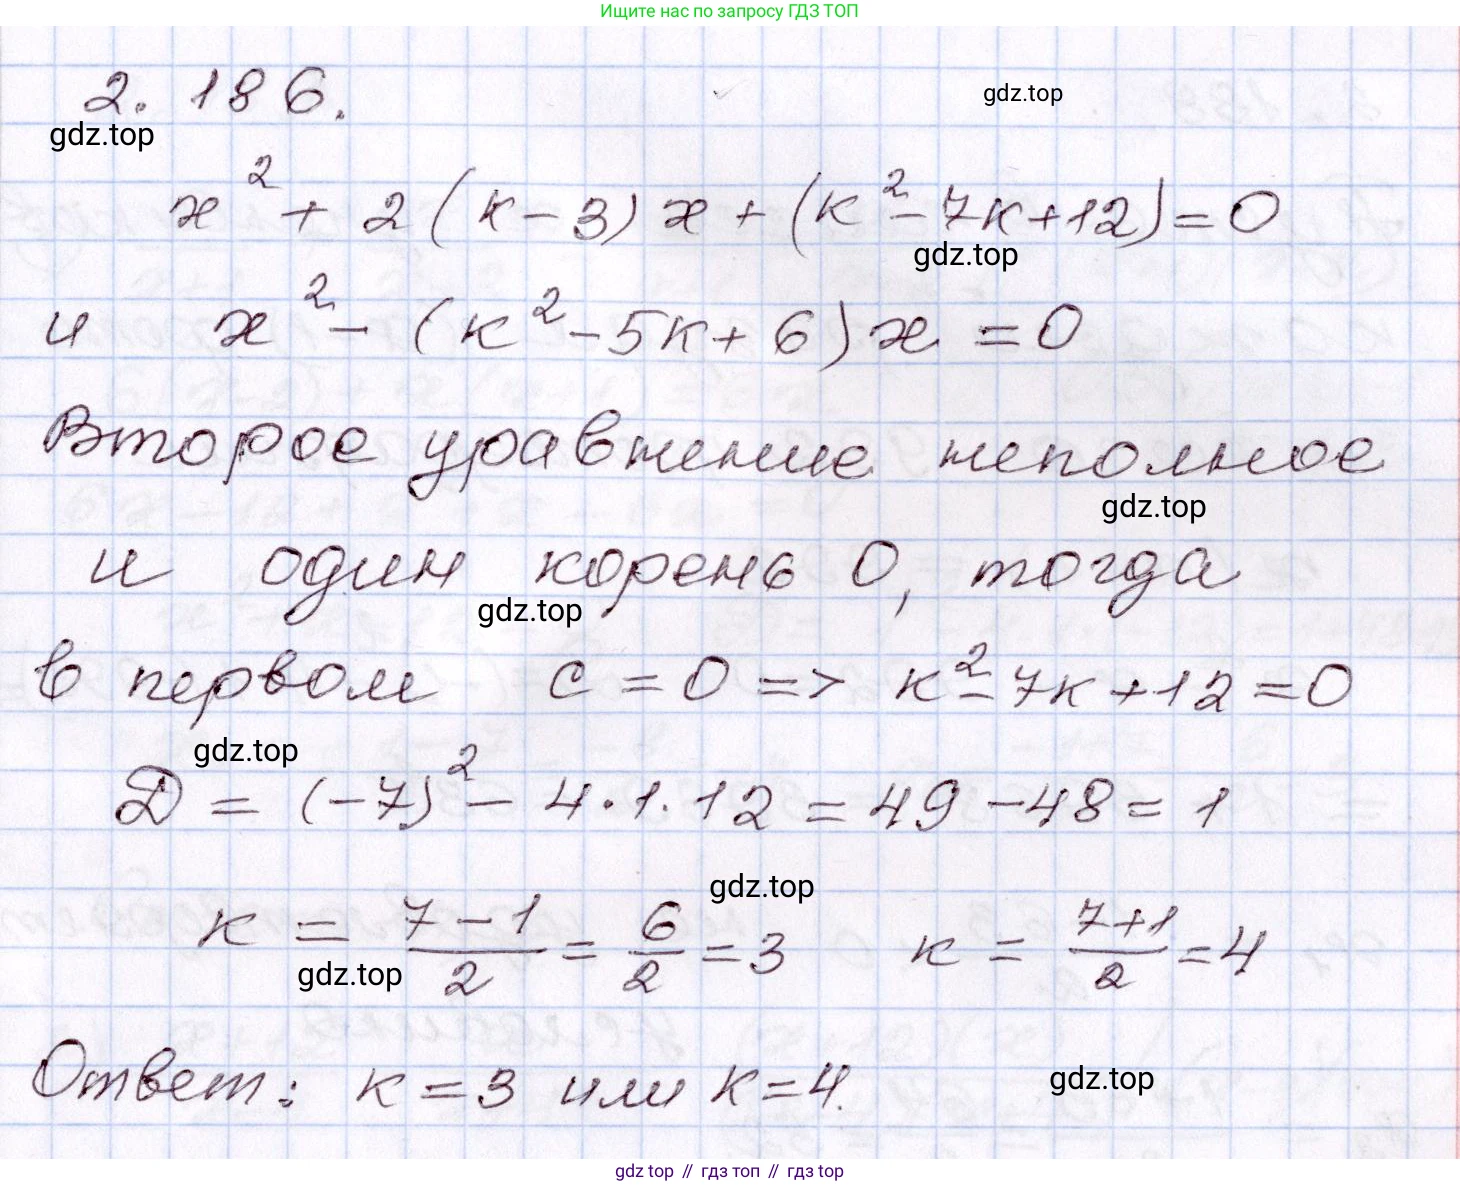 Ищите нас по запросу ГДЗ ТОП
2. 186.
gdz.top
gdz.top
x² + 2(к-3)x + (к²-7к+12)=0
gdz.top
и x² - (к²-5к+6)x = 0
Второе уравнение неполное
gdz.top
и один корень 0, тогда
gdz.top
в первом c = 0 => к²-7к+12=0
gdz.top
D = (-7)² - 4·1·12 = 49-48 = 1
gdz.top
к = (7-1)/2 = 6/2 = 3 к = (7+1)/2 = 4
gdz.top
Ответ: к=3 или к=4.
gdz.top
gdz top // гдз топ // гдз top